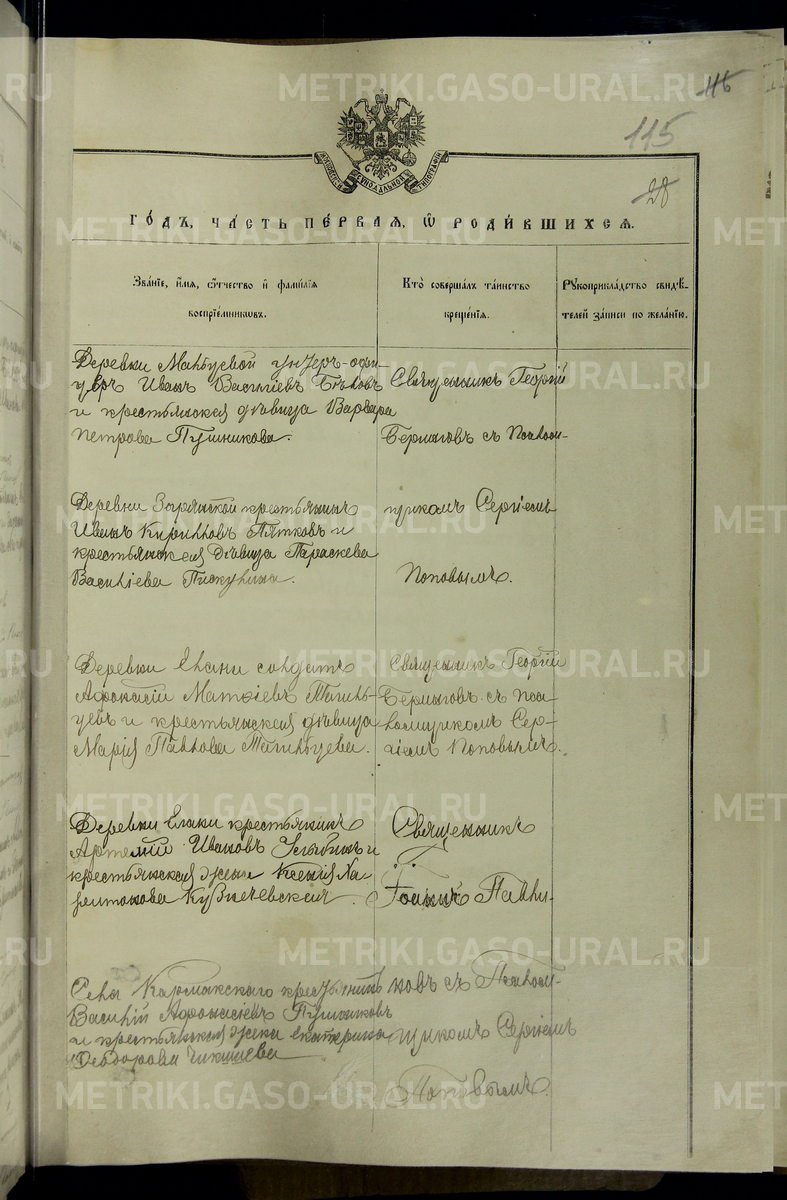 116
115
28
МОСКОВСКОЙ СѴНОДАЛЬНОЙ ТИПОГРАФІИ
ГОДЪ, ЧАСТЬ ПЕРВАЯ, Ѡ РОДИВШИХСЯ.
Званіе, имя, отчество и фамилія
воспріемниковъ.
Кто совершалъ таинство
крещенія.
Рукоприкладство свидѣ-
телей записи по желанію.
Деревни Мальцевой унтеръ-офи-
церъ Иванъ Васильевъ Бѣловъ
и крестьянская дѣвица Варвара
Петрова Пушникова.
Священникъ Георгій
Бермяговъ съ Псалом-
Деревни Зырянской крестьянинъ
Иванъ Кирилловъ Пятковъ и
крестьянская Дѣвица Параскева
Василіева Пискулина.
щикомъ Сергіемъ
Поповымъ.
Деревни Елани солдатъ
Афонасій Матѳіевъ Тагиль-
цевъ и крестьянская дѣвица
Марія Павлова Тагильцева.
Священникъ Георгій
Бермяговъ съ пса-
ломщикомъ Сер-
гіемъ Поповымъ.
Деревни Елани крестьянинъ
Артемій Ивановъ и
крестьянская жена Ксенія Ха-
ритонова Кузнечевская.
Священникъ
Іоаннъ Павли-
Села Кармакскаго крестьянинъ
Василій Афонасіевъ Пушниковъ
и крестьянская жена Екатерина
Ѳеодорова
новъ съ Псалом-
щикомъ Сергіемъ
Поповымъ.
METRIKI.GASO-URAL.RU